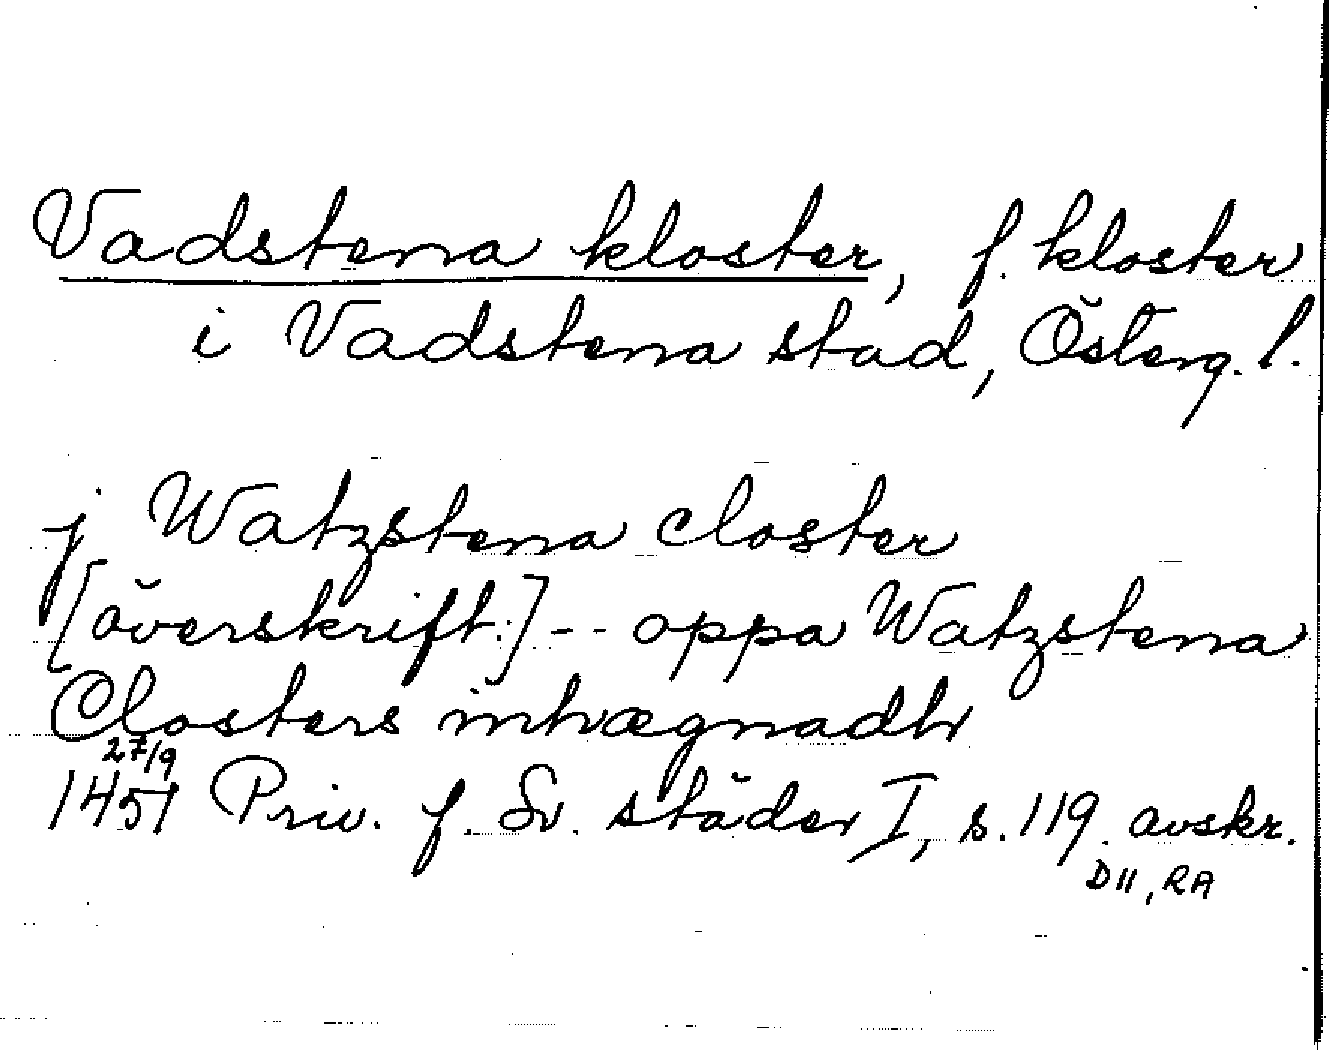 Vadstena kloster, f. kloster
i Vadstena stad, Österg. l.
j Watzstena closter
[överskrift:] -- oppa Watzstena
Closters inhægnadh
27/9
1451 Priv. f. Sv. städer I, s. 119. avskr.
D 11, RA